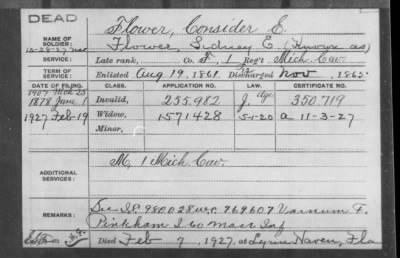 DEAD
Flower, Consider E.
NAME OF SOLDIER:
Flower, Sidney E (Known as)
10-28-27
SERVICE:
Late rank, Co. F, 1 Reg't Mich Cav
TERM OF SERVICE:
Enlisted Aug 19, 1861. Discharged Nov, 1865.
DATE OF FILING. CLASS. APPLICATION NO. LAW. CERTIFICATE NO.
1907 Mch 25
1878 June 1 Invalid, 255.982 J. Age 350.719
1927 Feb-19 Widow, 1571428 5-1-20 a 11-3-27
Minor,
M, 1 Mich Cav.
ADDITIONAL SERVICES:
See S.P. 980028 W.C. 769607 Varnum F.
REMARKS:
Pinkham I. 60 Mass Inf
Died Feb 7, 1927, at Lynn Haven, Fla